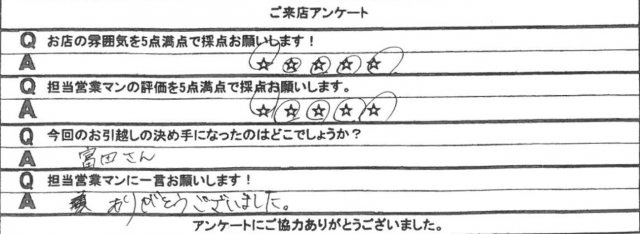 ご来店アンケート
Q お店の雰囲気を5点満点で採点お願いします！
A ☆☆☆☆☆
Q 担当営業マンの評価を5点満点で採点お願いします。
A ☆☆☆☆☆
Q 今回のお引越しの決め手になったのはどこでしょうか？
A 富田さん
Q 担当営業マンに一言お願いします！
A ありがとうございました。
アンケートにご協力ありがとうございました。